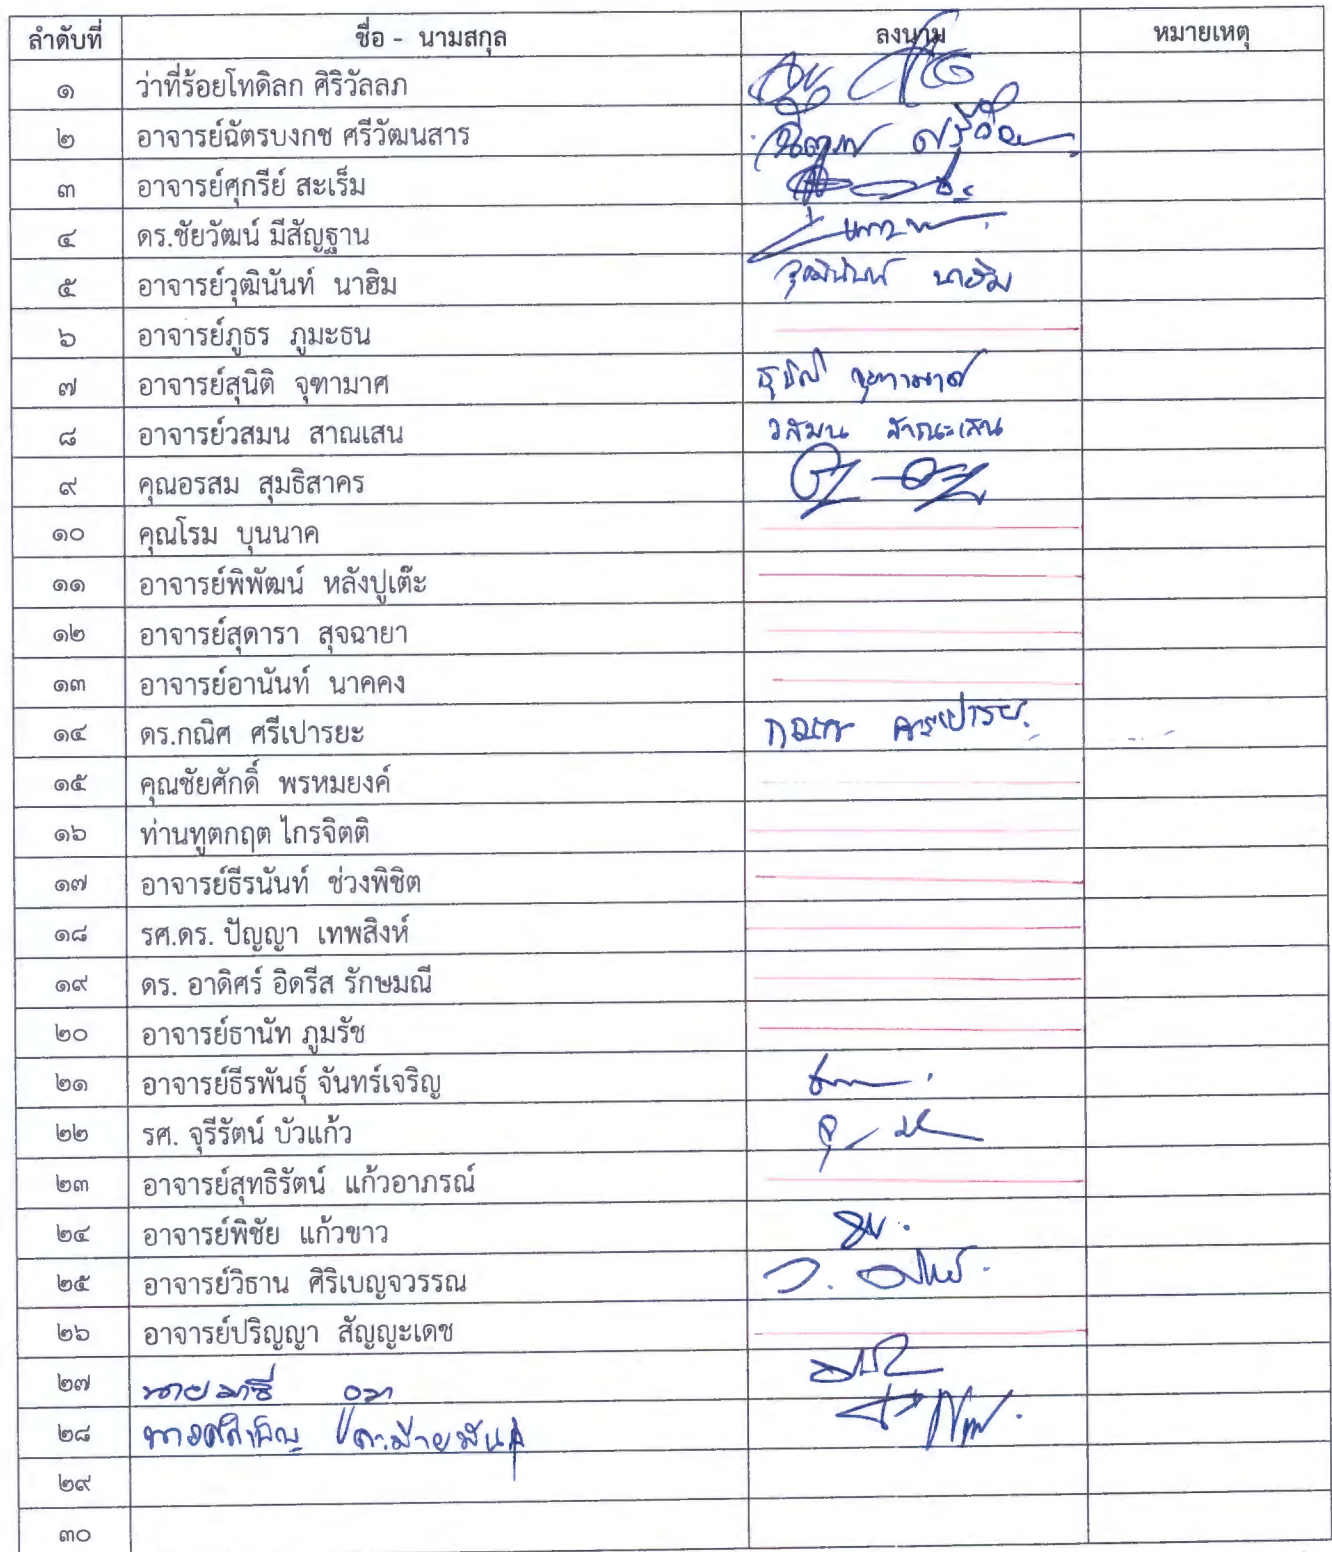 ลำดับที่ ชื่อ - นามสกุล ลงนาม หมายเหตุ
๑ ว่าที่ร้อยโทดิลก ศิริวัลลภ
๒ อาจารย์ฉัตรบงกช ศรีวัฒนสาร
๓ อาจารย์ศุกรีย์ สะเร็ม
๔ ดร.ชัยวัฒน์ มีสัญฐาน
๕ อาจารย์วุฒินันท์ นาฮิม วุฒินันท์ นาฮิม
๖ อาจารย์ภูธร ภูมะธน
๗ อาจารย์สุนิติ จุฑามาศ สุนิติ จุฑามาศ
๘ อาจารย์วสมน สาณเสน วสมน สาณะเสน
๙ คุณอรสม สุมธิสาคร
๑๐ คุณโรม บุนนาค
๑๑ อาจารย์พิพัฒน์ หลังปูเต๊ะ
๑๒ อาจารย์สุดารา สุจฉายา
๑๓ อาจารย์อานันท์ นาคคง
๑๔ ดร.กณิศ ศรีเปารยะ
๑๕ คุณชัยศักดิ์ พรหมยงค์
๑๖ ท่านทูตกฤต ไกรจิตติ
๑๗ อาจารย์ธีรนันท์ ช่วงพิชิต
๑๘ รศ.ดร. ปัญญา เทพสิงห์
๑๙ ดร. อาดิศร์ อิดรีส รักษมณี
๒๐ อาจารย์ธานัท ภูมรัช
๒๑ อาจารย์ธีรพันธุ์ จันทร์เจริญ
๒๒ รศ. จุรีรัตน์ บัวแก้ว
๒๓ อาจารย์สุทธิรัตน์ แก้วอาภรณ์
๒๔ อาจารย์พิชัย แก้วขาว
๒๕ อาจารย์วิธาน ศิริเบญจวรรณ
๒๖ อาจารย์ปริญญา สัญญะเดช
๒๗
๒๘
๒๙
๓๐